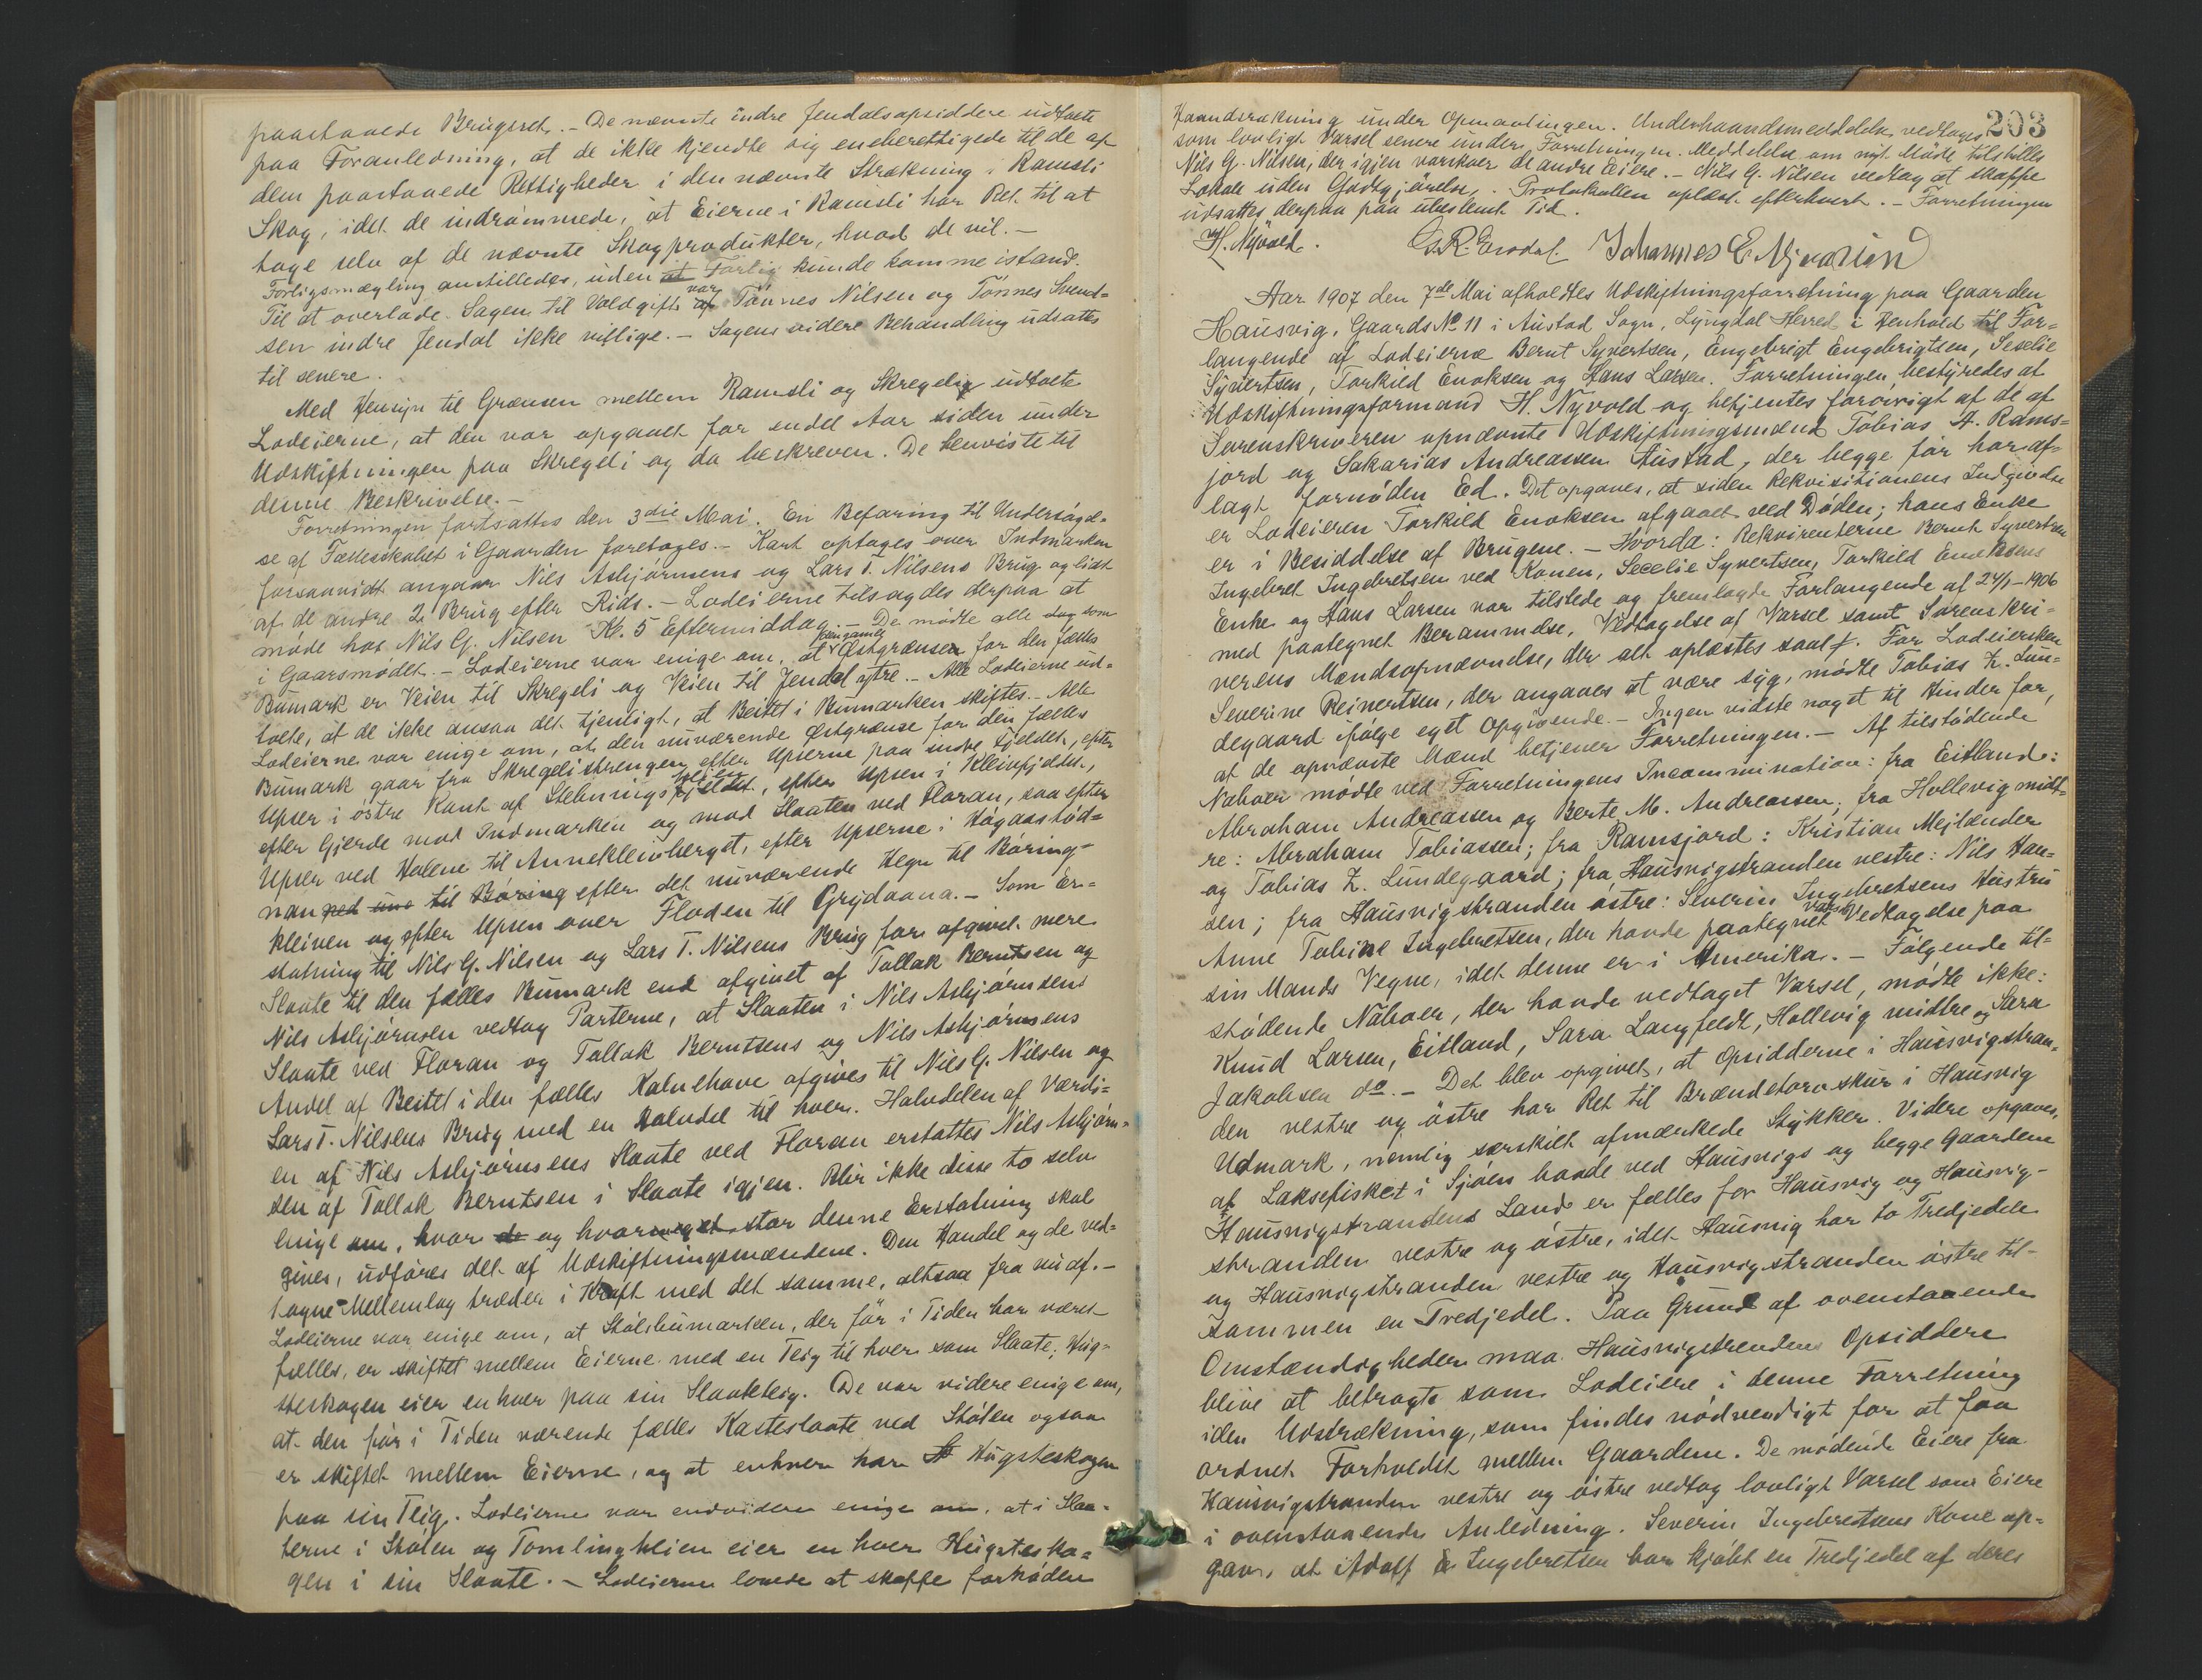 paastaaede Brugsret. – De nævnte indre Jendalsopsiddere udtalte
paa Foranledning, at de ikke kjendte sig eneberettigede til de af
dem paastaaede Rettigheder i den nævnte Strækning i Ramsli
Skog, idet de indrømmede, at Eierne i Ramsli har Ret til at
tage selv af de nævnte Skogprodukter, hvad de vil. –
Forligsmægling anstilledes, uden at Forlig kunde komme istand.
Til at overlade Sagen til Voldgift var Tønnes Nilsen og Tønnes Svend-
sen indre Jendal ikke villige. – Sagens videre Behandling udsattes
til senere.
Med Hensyn til Grænsen mellem Ramsli og Skregeli udtalte
Lodeierne, at den var opgaaet for endel Aar siden under
Udskiftningen paa Skregeli og da beskreven. De henviste til
denne Beskrivelse. –
Forretningen fortsattes den 3die Mai. En Befaring til Undersøgel-
se af Fællesskabet i Gaarden foretoges. – Kart optages over Indmarken
forsaavidt angaar Nils Asbjørnsens og Lars T. Nilsens Brug og lidt
af de andre 2 Brug efter Rids. – Lodeierne tilsagdes derpaa at
møde hos Nils G. Nilsen Kl. 5 Eftermiddag. – De mødte alle som
i Gaarsmødet. – Lodeierne var enige om, at Østgrænsen for den fælles
Bumark er Veien til Skregeli og Veien til Jendal ytre. – Alle Lodeierne ud-
talte, at de ikke ansaa det tjenligt, at Beitet i Bumarken skiftes. – Alle
Lodeierne var enige om, at den nuværende Østgrænse for den fælles
Bumark gaar fra Skregelistrengen efter Upserne paa indre Fjeldet, efter
Upser i østre Kant af Stebningsfjeldet, efter Upsen i Kleivfjeldet,
efter Gjerde mod Indmarken og mod Slaaten ved Floran, saa efter
Upser ved Halene til Annekleivberget, efter Upserne i Høgaasstød-
nan til Børing efter det nuværende Hegn til Børing-
kleiven og efter Upsen over Floden til Grydaana. – Som Er-
statning til Nils G. Nilsen og Lars T. Nilsens Brug for afgivet mere
Slaate til den fælles Bumark end afgivet af Tallak Berntsen og
Nils Asbjørnsen vedtog Parterne, at Slaaten i Nils Asbjørnsens
Slaate ved Floran og Tallak Berntsens og Nils Asbjørnsens
Andel af Beitet i den fælles Kalvehave afgives til Nils G. Nilsen og
Lars T. Nilsens Brug med en Halvdel til hver. Halvdelen af Værdi-
en af Nils Asbjørnsens Slaate ved Floran erstattes Nils Asbjørn-
sen af Tallak Berntsen i Slaate igjen. Blir ikke disse to selv
enige om, hvor og hvormeget stor denne Erstatning skal
gives, udføres det af Udskiftningsmændene. Den Handel og de ved-
tagne Mellemlag træder i Kraft med det samme, altsaa fra nu af. –
Lodeierne var enige om, at Stølsbumarken, der før i Tiden har været
fælles, er skiftet mellem Eierne med en Teig til hver som Slaate; Hug-
sterskogen eier enhver paa sin Slaateteig. De var videre enige om,
at den før i Tiden værende fælles Kasteslaate ved Stølen ogsaa
er skiftet mellem Eierne, og at enhver har Hugsteskogen
paa sin Teig. Lodeierne var endvidere enige om, at i Slaa-
terne i Stølen og Tomlingheien eier en hver Hugstesko-
gen i sin Slaate. – Lodeierne lovede at skaffe fornøden
203
Haandsrækning under Opmaalingen. Underhaandsmeddelelse vedtages
som lovligt Varsel senere under Forretningen. Meddelelse om nyt Møde tilstilles
Nils G. Nilsen, der igjen varskoer de andre Eiere. – Nils G. Nilsen vedtog at skaffe
Lokale uden Godtgjørelse. Protokollen oplæst efterhvert. – Forretningen
udsattes derpaa paa ubestemt Tid.
H. Nyvold. G. R. Erosdal. Johannes E.
Aar 1907 den 7de Mai afholdtes Udskiftningsforretning paa Gaarden
Hausvig, Gaards No 11 i Austad Sogn, Lyngdal Herred i Henhold til For-
langende af Lodeierne Bernt Syvertsen, Engebrigt Engebrigtsen, Seselie
Syvertsen, Torkild Enoksen og Hans Larsen. Forretningen bestyredes af
Udskiftningsformand H. Nyvold og betjentes forøvrigt af de af
Sorenskriveren opnævnte Udskiftningsmænd Tobias A. Rams-
jord og Sakarias Andreassen Austad, der begge før har af-
lagt fornøden Ed. Det opgaves, at siden Rekvisitionens Indgivelse
er Lodeieren Torkild Enoksen afgaaet ved Døden; hans Enke
er i Besiddelse af Brugene. – Hvorda: Rekvirenterne Bernt Syvertsen
Ingebret Ingebretsen ved Konen, Secelie Syvertsen, Torkild Enoksens
Enke og Hans Larsen var tilstede og fremlagde Forlangende af 24/1-1906
med paategnet Berammelse, Vedtagelse af Varsel samt Sorenskri-
verens Mændsopnævnelse, der alt oplæstes saalt. For Lodeiersken
Severine Reinertsen, der angaves at være syg, mødte Tobias Z. Lun-
degaard ifølge eget Opgivende. – Ingen vidste noget til Hinder for,
at de opnævnte Mænd betjener Forretningen. – Af tilstødende
Naboer mødte ved Forretningens Incammination: fra Eitland:
Abraham Andreassen og Berte M. Andreassen; fra Hollevig midt-
re: Abraham Tobiassen; fra Ramsjord: Kristian Mejlænder
og Tobias Z. Lundegaard; fra Hausvigstranden vestre: Nils Han-
sen; fra Hausvigstranden østre: Severin Ingebretsens Hustru
Anne Tobine Ingebretsen, der havde paategnet Varsel Vedtagelse paa
sin Mands Vegne, idet denne er i Amerika. – Følgende til-
stødende Naboer, der havde vedtaget Varsel, mødte ikke:
Knud Larsen, Eitland, Sara Langfeldt, Hollevig midtre og Sara
Jakobsen do. – Det blev opgivet, at Opsidderne i Hausvigstran-
den vestre og østre har Ret til Brændetorvskur i Hausvig
Udmark, nemlig særskilt afmærkede Stykker. Videre opgaves,
at Laksefisket i Sjøen baade ved Hausvigs og begge Gaardene
Hausvigstrandens Land er fælles for Hausvig og Hausvig-
stranden vestre og østre, idet Hausvig har to Tredjedele
og Hausvigstranden vestre og Hausvigstranden østre til-
sammen en Tredjedel. Paa Grund af ovenstaaende
Omstændigheder maa Hausvigstrandens Opsiddere
blive at betragte som Lodeiere i denne Forretning
iden Udstrækning, som findes nødvendigt for at faa
ordnet Forholdet mellem Gaardene. De mødende Eiere fra
Hausvigstranden vestre og østre vedtog lovligt Varsel som Eiere
i ovenstaaende Anledning. Severin Ingebretsens Kone op-
gav, at Adolf Ingebretsen har kjøbt en Tredjedel af deres